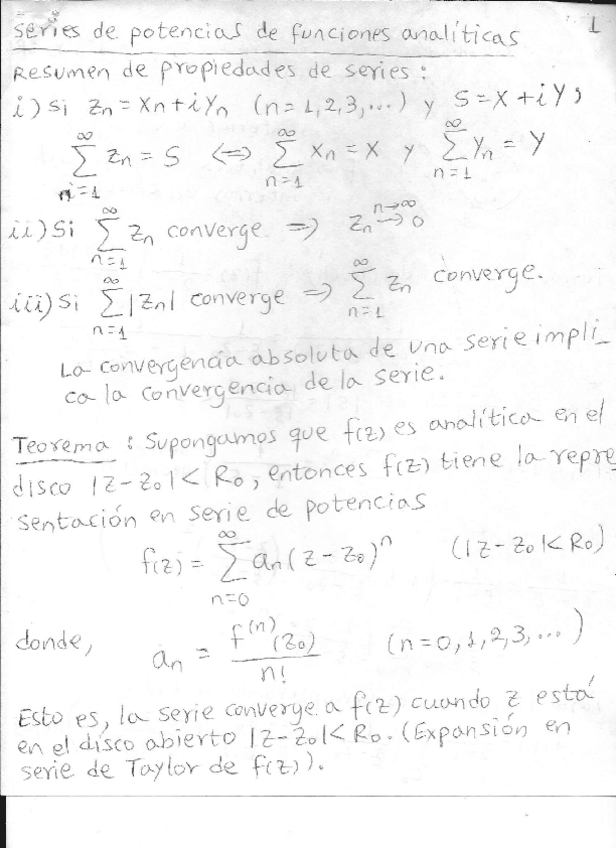 series de potencias de funciones analíticas 1
Resumen de propiedades de series:
i) Si Zn = Xn + iYn (n = 1, 2, 3, ...) y S = X + iY,
∞ ∑ n=1 Zn = S ⟺ ∞ ∑ n=1 Xn = X y ∞ ∑ n=1 Yn = Y
ii) Si ∞ ∑ n=1 Zn converge ⟹ Zn n→∞ → 0
iii) Si ∞ ∑ n=1 |Zn| converge ⟹ ∞ ∑ n=1 Zn converge.
La convergencia absoluta de una serie impli_
ca la convergencia de la serie.
Teorema : Supongamos que f(z) es analítica en el
disco |z-zo| < Ro, entonces f(z) tiene la repre
sentación en serie de potencias
f(z) = ∞ ∑ n=0 an(z-zo)^n (|z-zo|<Ro)
donde, an = f^(n)(zo) / n! (n=0, 1, 2, 3, ...)
Esto es, la serie converge a f(z) cuando z está
en el disco abierto |z-zo|<Ro. (Expansión en
serie de Taylor de f(z)).